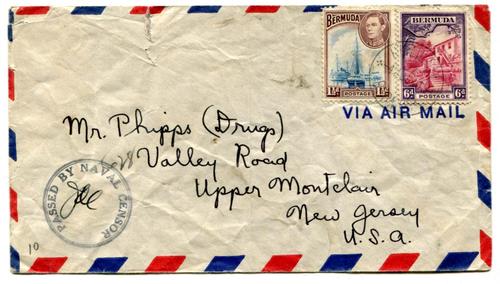 BERMUDA
1½d POSTAGE 1½d
BERMUDA
6d POSTAGE 6d
VIA AIR MAIL
Mr. Phipps (Drugs)
28 Valley Road
Upper Montclair
New Jersey
U.S.A.
PASSED BY NAVAL CENSOR
10